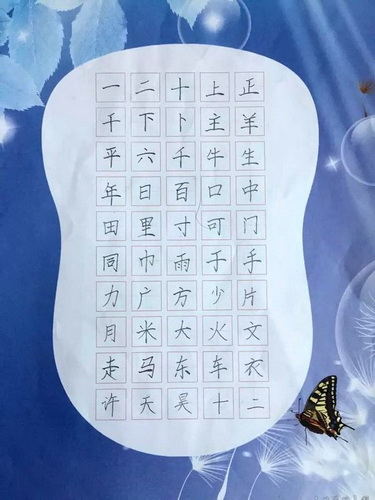 一二十上正
干下卜主羊
平六千牛生
年日百口中
田里寸可门
同巾雨于手
力广方少片
月米大火文
走马东车衣
许天昊十二